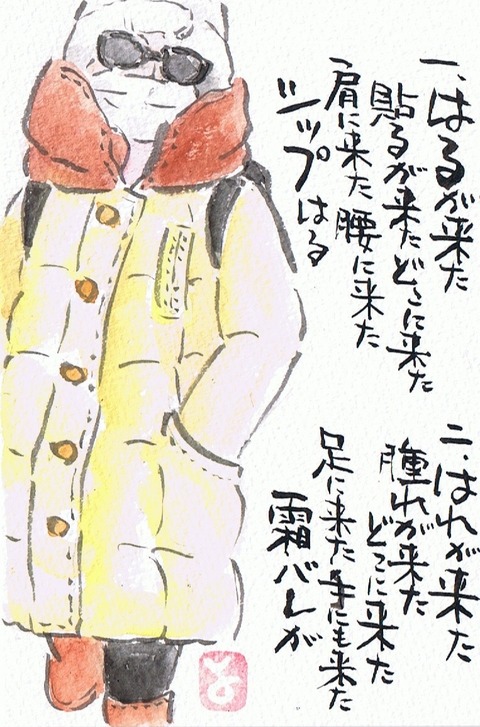 一、はるが来た
貼るが来たどこに来た
肩に来た腰に来た
シップはる
二、はれが来た
腫れが来た
どこに来た
足に来た手にも来た
霜バレが